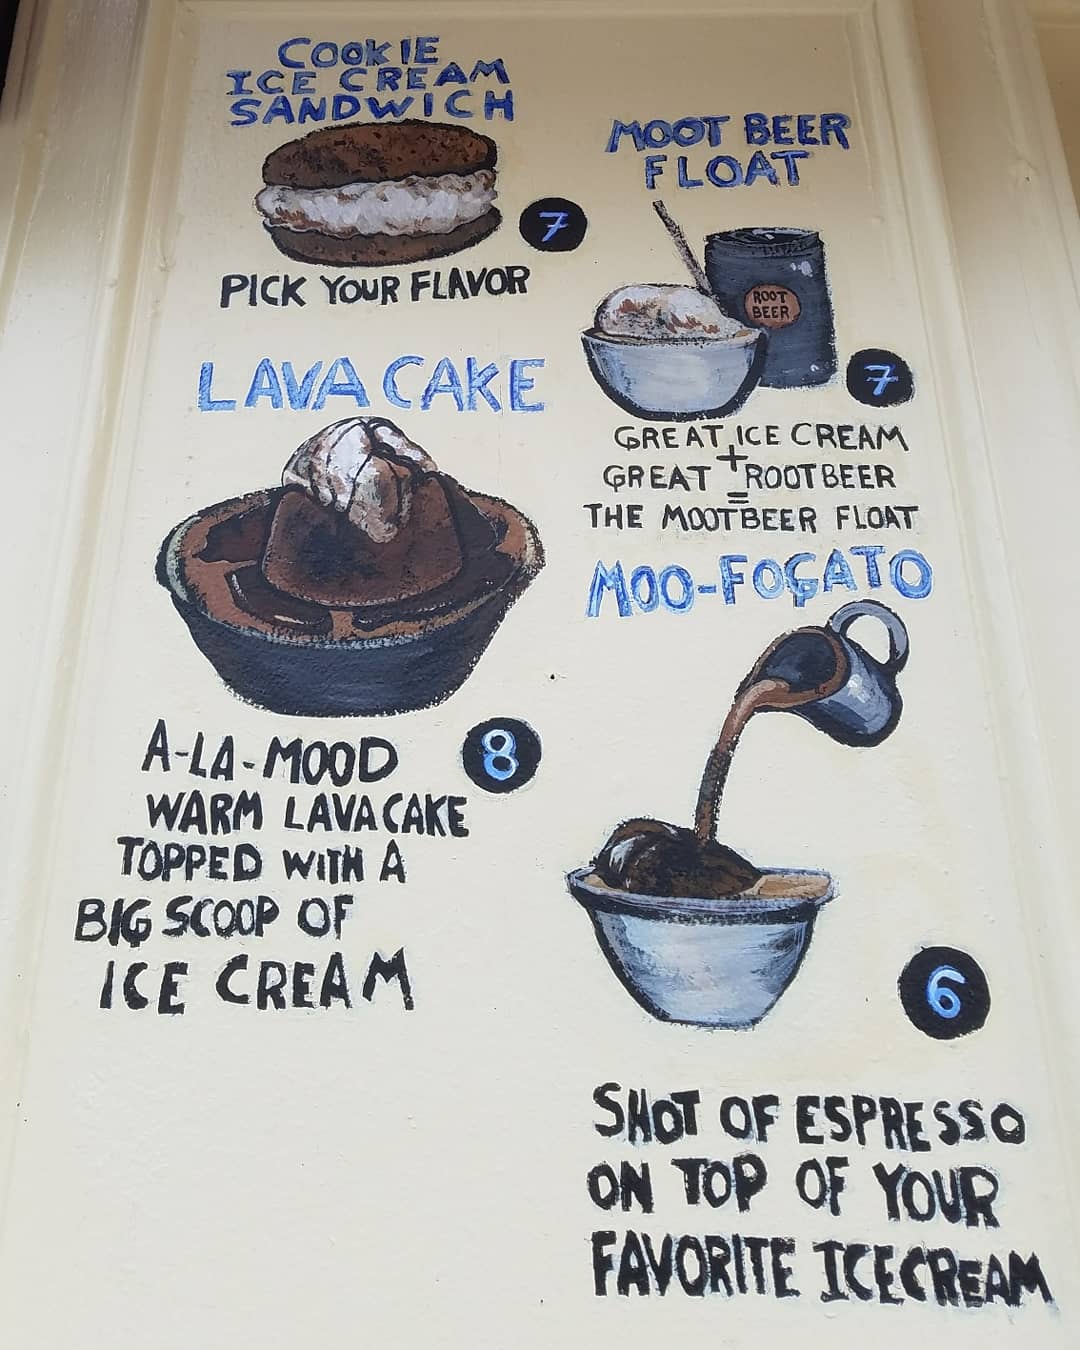 COOKIE
ICE CREAM
SANDWICH
7
PICK YOUR FLAVOR
MOOT BEER
FLOAT
ROOT
BEER
7
GREAT ICE CREAM
+
GREAT ROOTBEER
=
THE MOOTBEER FLOAT
LAVA CAKE
A-LA-MOOD
8
WARM LAVA CAKE
TOPPED WITH A
BIG SCOOP OF
ICE CREAM
MOO-FOGATO
6
SHOT OF ESPRESSO
ON TOP OF YOUR
FAVORITE ICECREAM